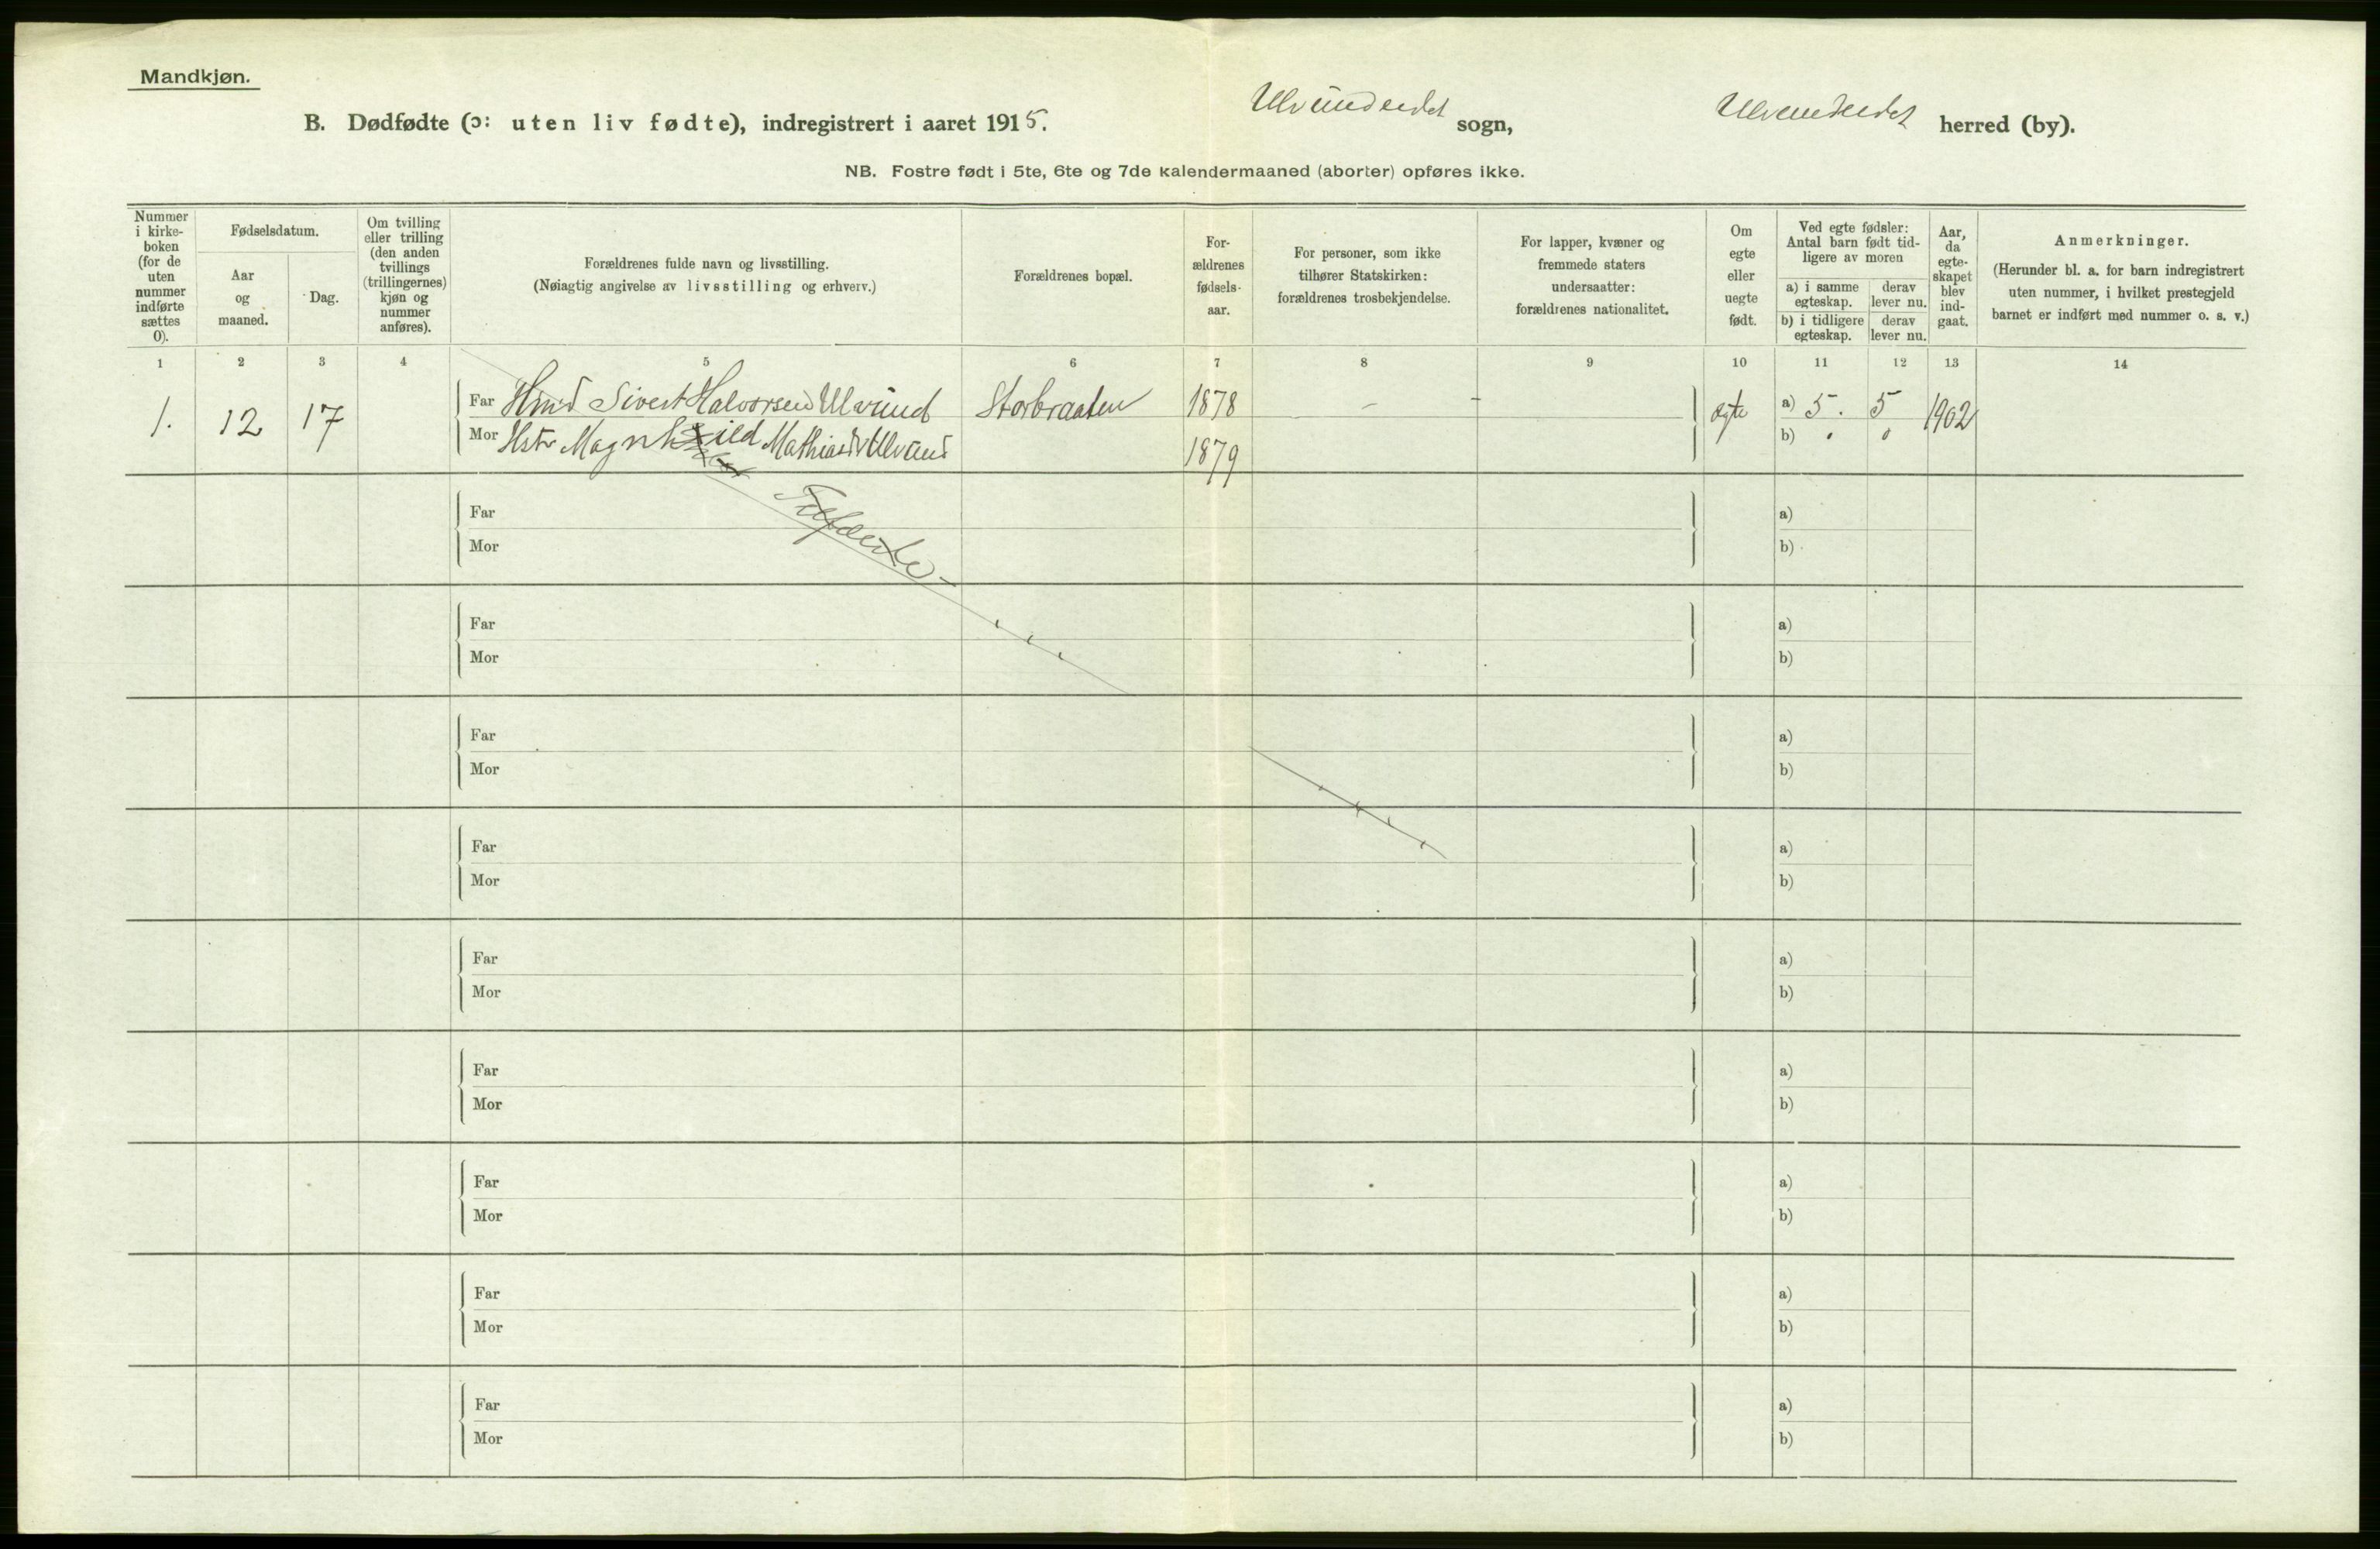 Mandkjøn.
B. Dødfødte (ɔ: uten liv fødte), indregistrert i aaret 1915. Ulvundeidet sogn, Ulvundeidet herred (by).
NB. Fostre født i 5te, 6te og 7de kalendermaaned (aborter) opføres ikke.
Nummer
i kirke-
boken
(for de
uten
nummer
indførte
sættes
0).
Fødselsdatum.
Aar
og
maaned.
Dag.
Om tvilling
eller trilling
(den anden
tvillings
(trillingernes)
kjøn og
nummer
anføres).
Forældrenes fulde navn og livsstilling.
(Nøiagtig angivelse av livsstilling og erhverv.)
Forældrenes bopæl.
For-
ældrenes
fødsels-
aar.
For personer, som ikke
tilhører Statskirken:
forældrenes trosbekjendelse.
For lapper, kvæner og
fremmede staters
undersaatter:
forældrenes nationalitet.
Om
egte
eller
uegte
født.
Ved egte fødsler:
Antal barn født tid-
ligere av moren
a) i samme
egteskap.
derav
lever nu.
b) i tidligere
egteskap.
derav
lever nu.
Aar,
da
egte-
skapet
blev
ind-
gaat.
Anmerkninger.
(Herunder bl. a. for barn indregistrert
uten nummer, i hvilket prestegjeld
barnet er indført med nummer o. s. v.)
1 2 3 4 5 6 7 8 9 10 11 12 13 14
1. 12 17
Far Hmd Sivert Halvorsen Ulvund Storbraaten 1878 – – egte a) 5. 5 1902
Mor Hstr Magnhild Mathiasdtr Ulvund 1879 b) " "
Far a)
Mor b)
Far a)
Mor b)
Far a)
Mor b)
Far a)
Mor b)
Far a)
Mor b)
Far a)
Mor b)
Far a)
Mor b)
Far a)
Mor b)
Far a)
Mor b)